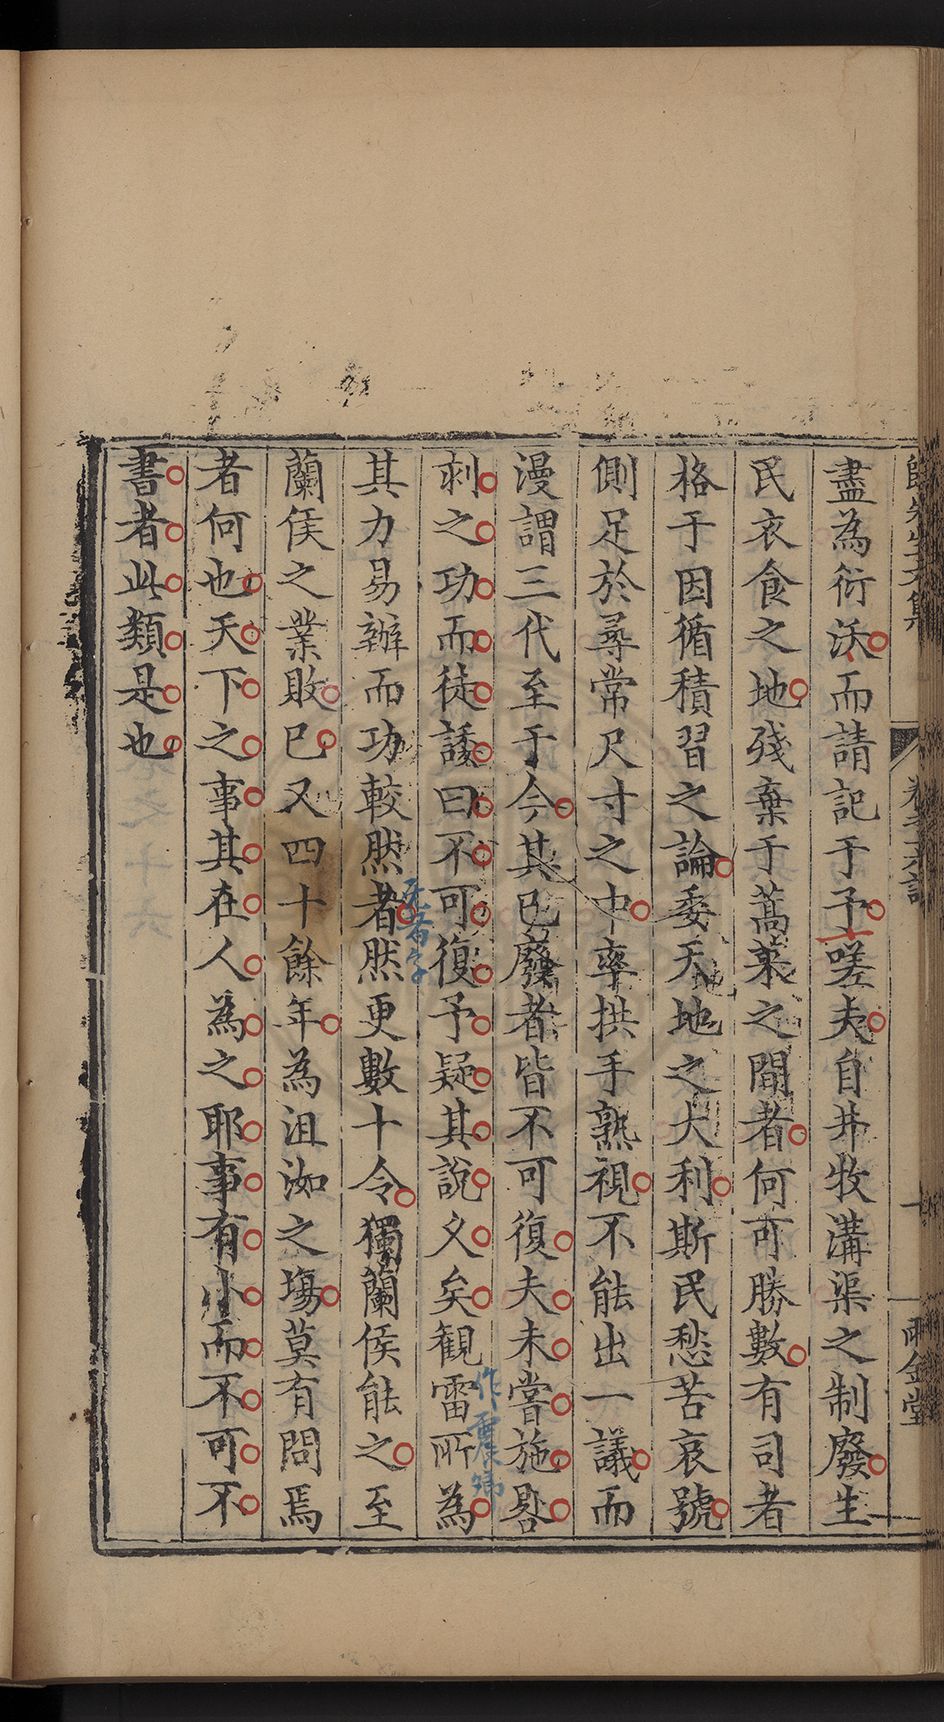 盡為衍沃而請記于予嗟夫自井牧溝渠之制廢生
民衣食之地殘棄于蒿萊之間者何可勝數有司者
格于因循積習之論委天地之大利斯民愁苦哀號
側足於尋常尺寸之中率拱手熟視不能出一議而
漫謂三代至于今其已廢者皆不可復夫未嘗施晷
刺之功而徒諉曰不可復予疑其說乂矣觀雷所為
其力易辦而功較然者然更數十令獨蘭侯能之至
蘭侯之業敗巳又四十餘年為沮洳之塲莫有問焉
者何也天下之事其在人為之耶事有小而不可不
書者此類是也